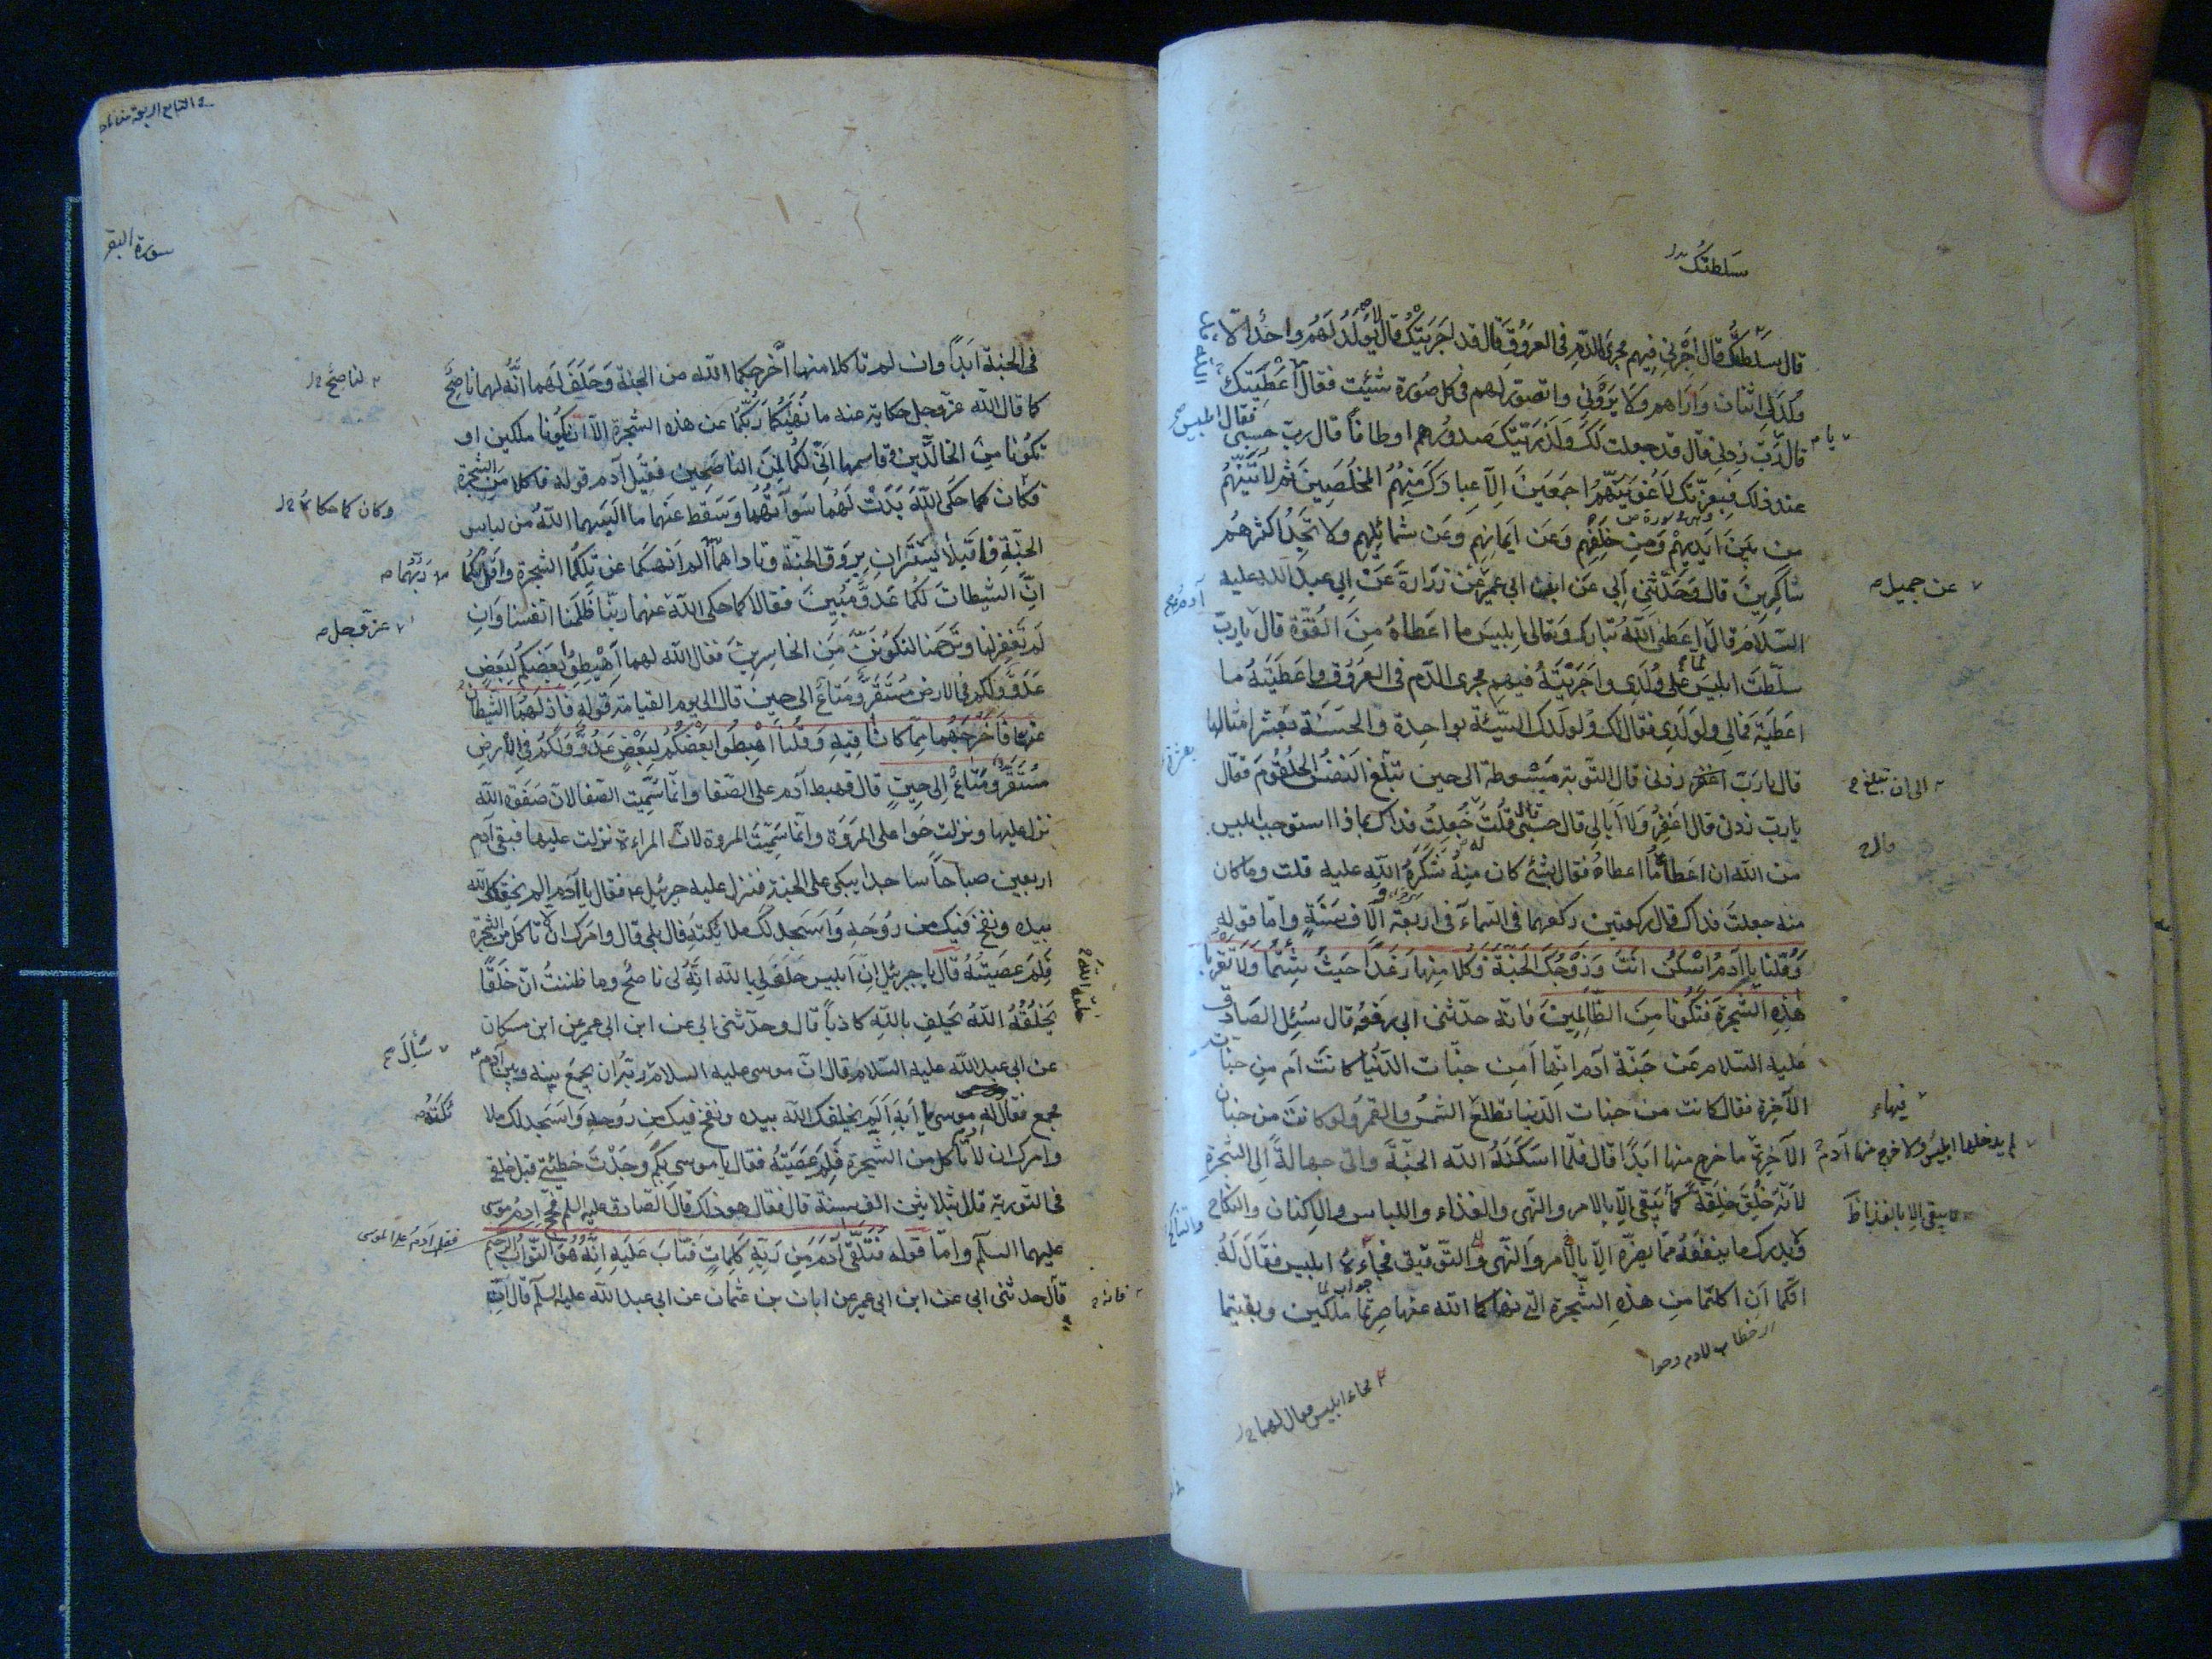 سلطتك
قال سلطتك قال اجرني فيهم مجرى الدم في العروق قال قد اجريتك قال لا يولد لهم واحد الا
ولد لي اثنان واراهم ولا يروني واتصور لهم في كل صورة شئت فقال اعطيتك
قال رب زدني قال قد جعلت لك ولذريتك صدورهم اوطانا قال رب حسبي
فقال ابليس
عند ذلك فبعزتك لاغوينهم اجمعين الا عبادك منهم المخلصين ثم لاتينهم
من بين ايديهم ومن خلفهم وعن ايمانهم وعن شمائلهم ولا تجد اكثرهم
شاكرين قال وحدثني ابي عن ابن ابي عمير عن زرارة عن ابي عبد الله عليه
عن جميل
السلام قال لما اعطى الله تبارك وتعالى ابليس ما اعطاه من القوة قال يا رب
سلطت ابليس على ولدي واجريته فيهم مجرى الدم في العروق واعطيته ما
اعطيته فما لي ولولدي فقال لك ولولدك السيئة بواحدة والحسنة بعشر امثالها
قال يا رب زدني قال التوبة مبسوطة الى حين تبلغ النفس الحلقوم فقال
الى ان تبلغ
يا رب زدني قال اغفر ولا ابالي قال حسبي قال قلت جعلت فداك بماذا استوجب ابليس
من الله ان اعطاه ما اعطاه فقال بشئ كان منه شكره الله عليه قلت وما كان
منه جعلت فداك قال ركعتين ركعهما في السماء في اربعة الاف سنة واما قوله
وقلنا يا ادم اسكن انت وزوجك الجنة وكلا منها رغدا حيث شئتما ولا تقربا
هذه الشجرة فتكونا من الظالمين فانه حدثني ابي رفعه قال سئل الصادق
عليه السلام عن جنة ادم انها امن جنات الدنيا كانت ام من جنات
الآخرة فقال كانت من جنات الدنيا تطلع الشمس والقمر ولو كانت من جنان
فيها
الآخرة ما خرج منها ابدا قال فلما اسكنه الله الجنة واتى جهالة الى الشجرة
لم يدخلها ابليس ولا خرج منها آدم
لانه خلق خلقة لا تبقى الا بالامر والنهي والغذاء واللباس والاكنان والنكاح
ولا يدرك ما ينفعه مما يضره الا بالامر والنهي والتوقيف فجاءه ابليس فقال له
انكما ان اكلتما من هذه الشجرة التي نهاكما الله عنها صرتما ملكين وبقيتما
خطاب لادم وحوا
فجاء ابليس فقال لهما
سورة البقر
في الجنة ابدا وان لم تاكلا منها اخرجكما الله من الجنة وحلف لهما انه لهما ناصح
لناصح
كما قال الله عز وجل حكاية عنه ما نهيكما ربكما عن هذه الشجرة الا ان تكونا ملكين او
تكونا من الخالدين وقاسمهما اني لكما لمن الناصحين فقبل آدم قوله فاكلا من الشجرة
فكان كما حكى الله بدت لهما سوآتهما وسقط عنهما ما البسهما الله من لباس
وكان كما حكاه
الجنة واقبلا يستتران بورق الجنة وناداهما الم انهكما عن تلكما الشجرة واقل لكما
ربهما
ان الشيطان لكما عدو مبين فقالا كما حكى الله عنهما ربنا ظلمنا انفسنا وان
عز وجل
لم تغفر لنا وترحمنا لنكونن من الخاسرين فقال الله لهما اهبطوا بعضكم لبعض
عدو ولكم في الارض مستقر ومتاع الى حين قال الى يوم القيامة قوله فازلهما الشيطان
عنها فاخرجهما مما كانا فيه وقلنا اهبطوا بعضكم لبعض عدو ولكم في الارض
مستقر ومتاع الى حين قال فهبط آدم على الصفا وانما سميت الصفا لان صفوة الله
نزل عليها ونزلت حوا على المروة وانما سميت المروة لان المراءة نزلت عليها فبقى آدم
اربعين صباحا ساجدا يبكي على الجنة فنزل عليه جبرئيل ع فقال يا آدم الم يخلقك الله
بيده ونفخ فيك من روحه واسجد لك ملائكته قال بلى قال وامرك ان لا تاكل من الشجرة
فلم عصيته قال يا جبرئيل ان ابليس حلف لي بالله انه لي ناصح وما ظننت ان خلقا
خلقه الله
يخلقه الله يحلف بالله كاذبا قال وحدثني ابي عن ابن ابي عمير عن ابن مسكان
عن ابي عبد الله عليه السلام قال ان موسى عليه السلام ربه ان يجمع بينه وبين آدم
سأل
فجمع فقال له موسى يا ابه الم يخلقك الله بيده ونفخ فيك من روحه واسجد لك ملا
ئكته
وامرك ان لا تاكل من الشجرة فلم عصيته فقال يا موسى بكم وجدت خطيئتي قبل خلقي
في التورية قال بثلاثين الف سنة قال فقال هو ذاك قال الصادق عليه السلم فحج ادم موسى
عليهما السلم واما قوله فتلقى آدم من ربه كلمات فتاب عليه انه هو التواب الرحيم
قال حدثني ابي عن ابن ابي عمير عن ابان بن عثمان عن ابي عبد الله عليه السلم قال ان
فانه